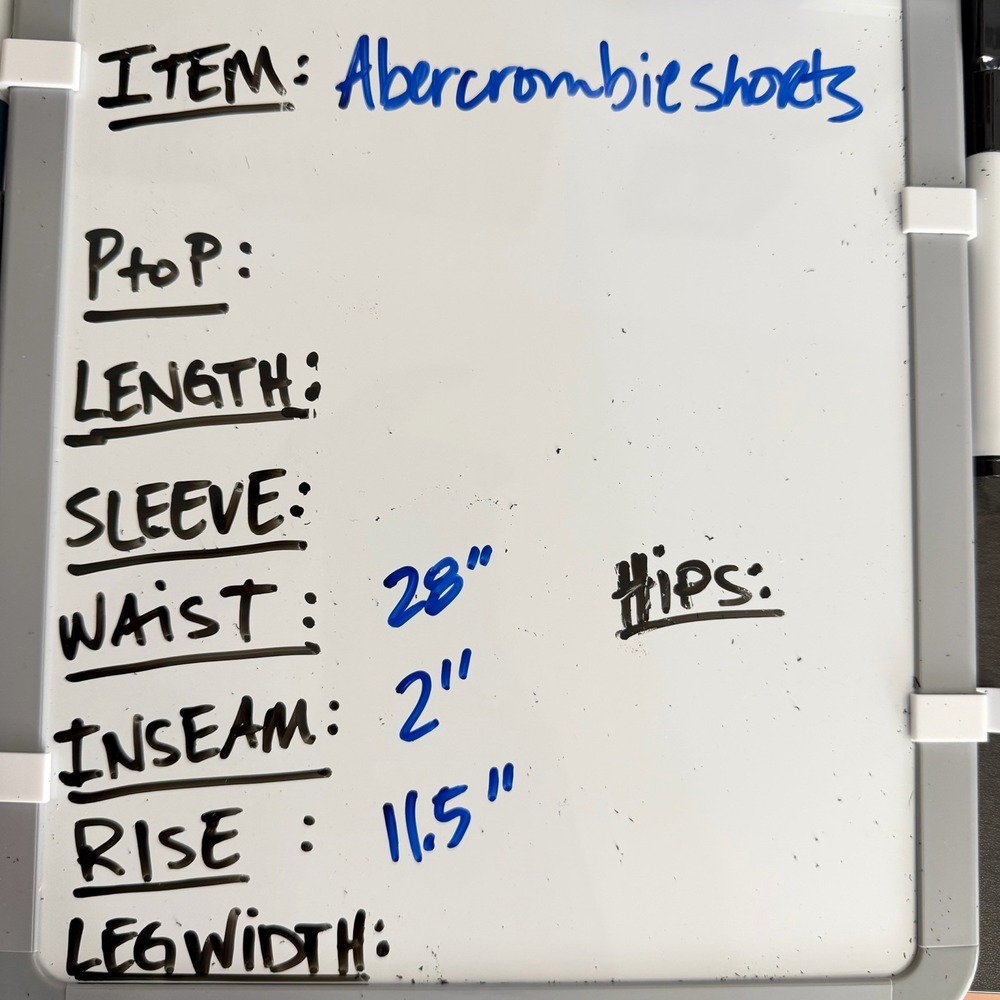 ITEM: Abercrombie shorts
P to P:
LENGTH:
SLEEVE:
WAiST: 28"
HiPS:
INSEAM: 2"
RISE: 11.5"
LEG WiDTH: